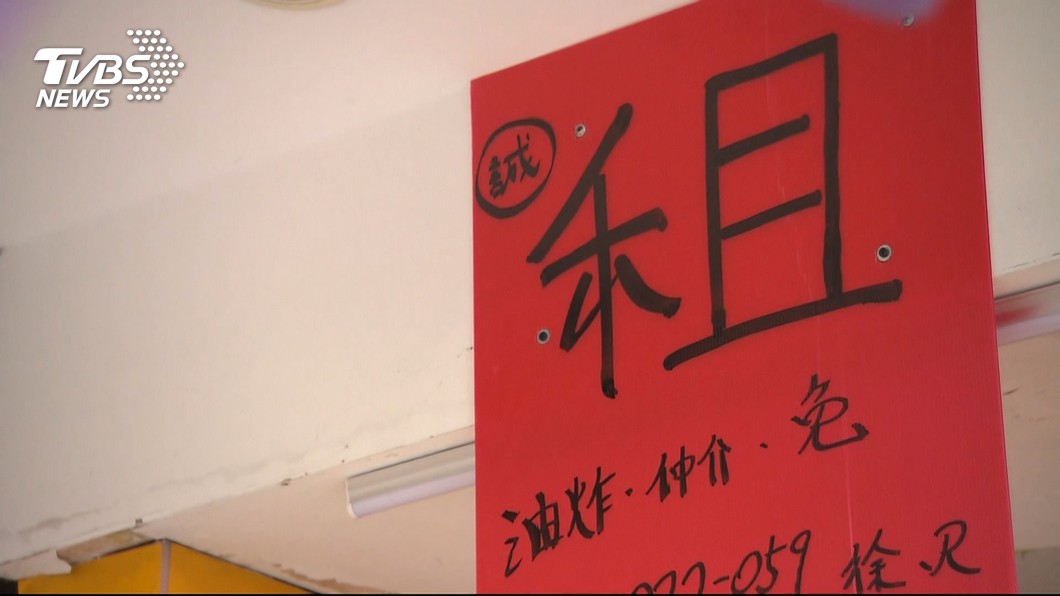 TVBS
NEWS
誠
租
油炸．仲介．免
-059 徐